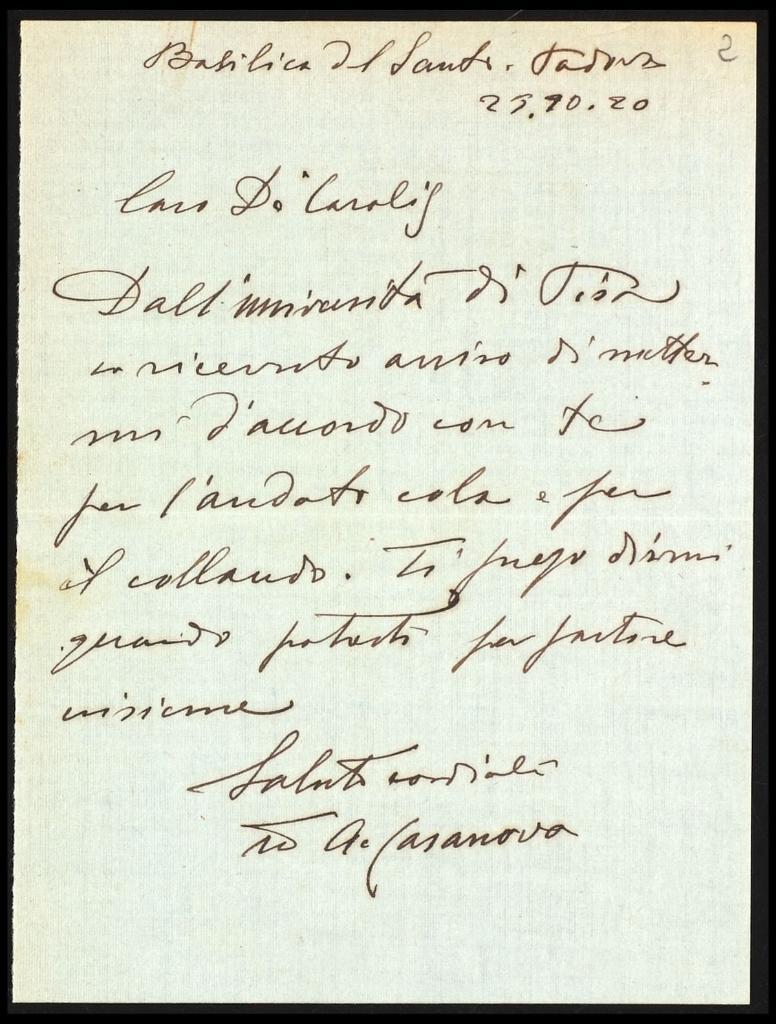 2
Basilica del Santo. Padova
25.10.20
Caro De Carolis
Dall'università di Pisa
ho ricevuto avviso di metter
mi d'accordo con te
per l'andata colà e per
il collaudo. Ti prego dirmi
quando potresti per partire
insieme
Saluti cordiali
tuo A. Casanova